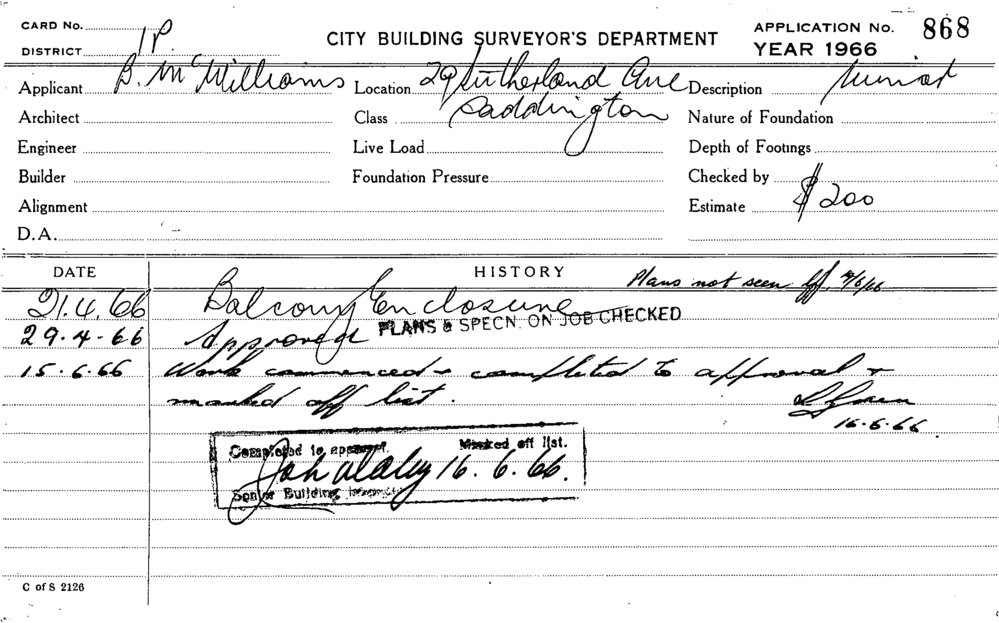 CARD No.
DISTRICT 1P.
CITY BUILDING SURVEYOR'S DEPARTMENT
APPLICATION No. 868
YEAR 1966
Applicant B. McWilliams Location 29 Sutherland Ave Description Minor
Architect Class Paddington Nature of Foundation
Engineer Live Load Depth of Footings
Builder Foundation Pressure Checked by
Alignment Estimate $200
D.A.
DATE HISTORY Plans not seen
21.4.66 Balcony Enclosure
PLANS & SPECN. ON JOB CHECKED
29.4.66 Approved
15.6.66 Work commenced & completed to approval &
marked off list.
16.6.66.
Completed to approval. Marked off list.
16.6.66.
Senior Building Inspector
C of S 2126